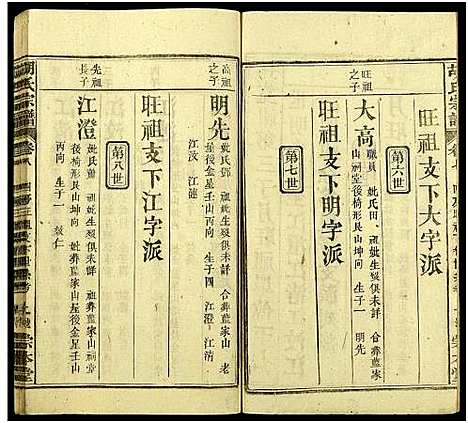 胡氏宗譜
旺祖支下大字派
第六世
旺祖之子
大高
職員 妣氏田 祖妣生殁俱未詳 合葬藍家
山祠堂後椅形艮山坤向 生子一 明先
旺祖支下明字派
第七世
高祖之子
明先
妣氏鄧 祖妣生殁俱未詳 合葬藍家山 老
屋後金星壬山丙向 生子四 江澄 江清
江汶 江漣
旺祖支下江字派
第八世
先祖長子
江澄
妣氏藍 祖妣生殁俱未詳 祖葬藍家山祠堂
後椅形艮山坤向 妣葬藍家山老屋後金星壬山
丙向 生子一 敦仁
胡氏宗譜 卷八